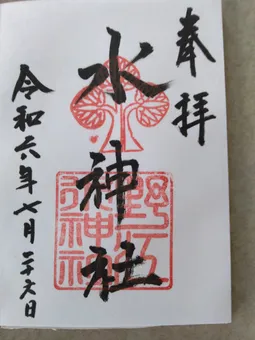 奉拝
水神社
令和六年七月二十六日
野江
水神社